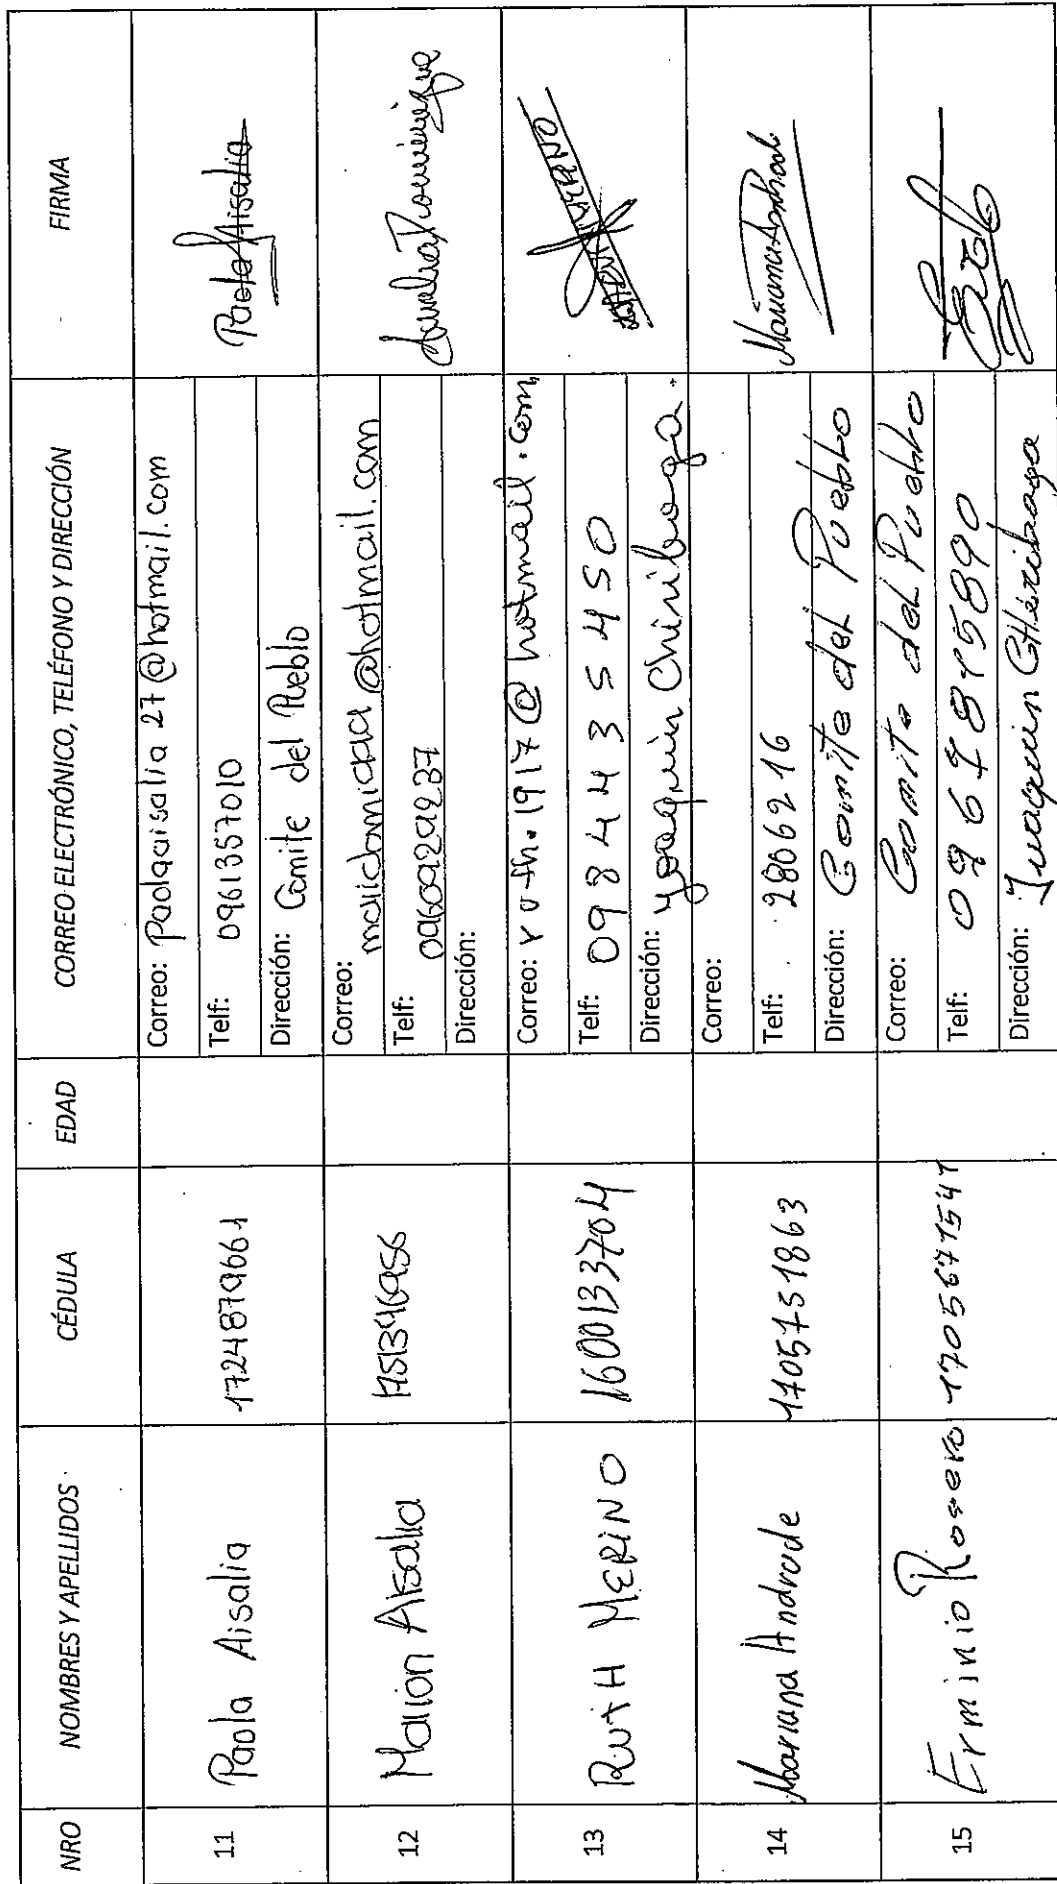 NRO NOMBRES Y APELLIDOS CÉDULA EDAD CORREO ELECTRÓNICO, TELÉFONO Y DIRECCIÓN FIRMA
11 Paola Aisalia 1724879661
Correo: Paolaaisalia27@hotmail.com
Telf: 0961357010
Dirección: Comite del Pueblo
Paola Aisalia
12
Correo: @hotmail.com
Telf:
Dirección:
13 RutH MERINO 1600133704
Correo: ruth.1917@hotmail.com
Telf: 0984435450
Dirección: Joaquin Chiriboga.
14 Mariana Andrade 1705751863
Correo:
Telf: 2806216
Dirección: Comite del Pueblo
Mariana Andrade
15 Erminio Rosero
Correo: Comite del Pueblo
Telf:
Dirección: Juaquin